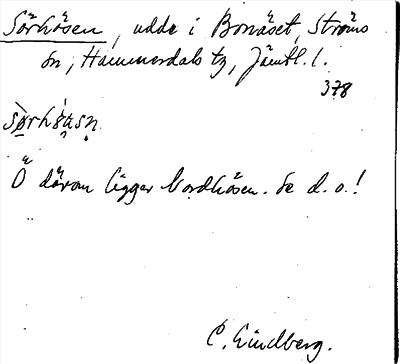 Sörhåsen, udde i Bonäset, Ströms
sn, Hammerdals tg, Jämtl. l.
378
Ö därom ligger Nordhåsen. Se d. o.!
C. Lindberg.